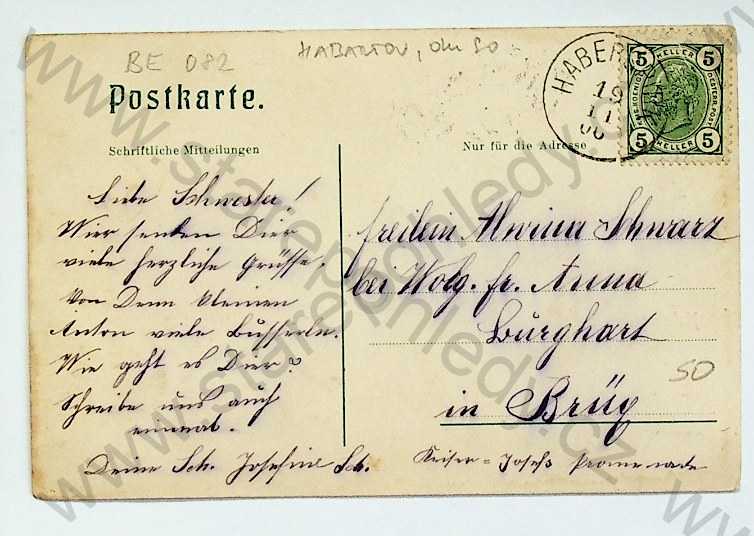 BE 082
HABARTOV, okr SO
Postkarte.
HABERS
19
11
06
5 HELLER 5
5 HELLER 5
Schriftliche Mitteilungen
Nur für die Adresse
Liebe Schwester!
Wier senden Dier
viele herzliche Grüsse.
Von Denn kleinen
Anton viele Busserln.
Wie geht es Dier?
Schreibe uns auch
einmal.
Deine Sch. Josefine Sch.
freilein Schwarz
bei Wolg. fr. Anna
Burghart
in Brüg
Keiser=Josefs Promenade
SO
www.starepohledy.cz